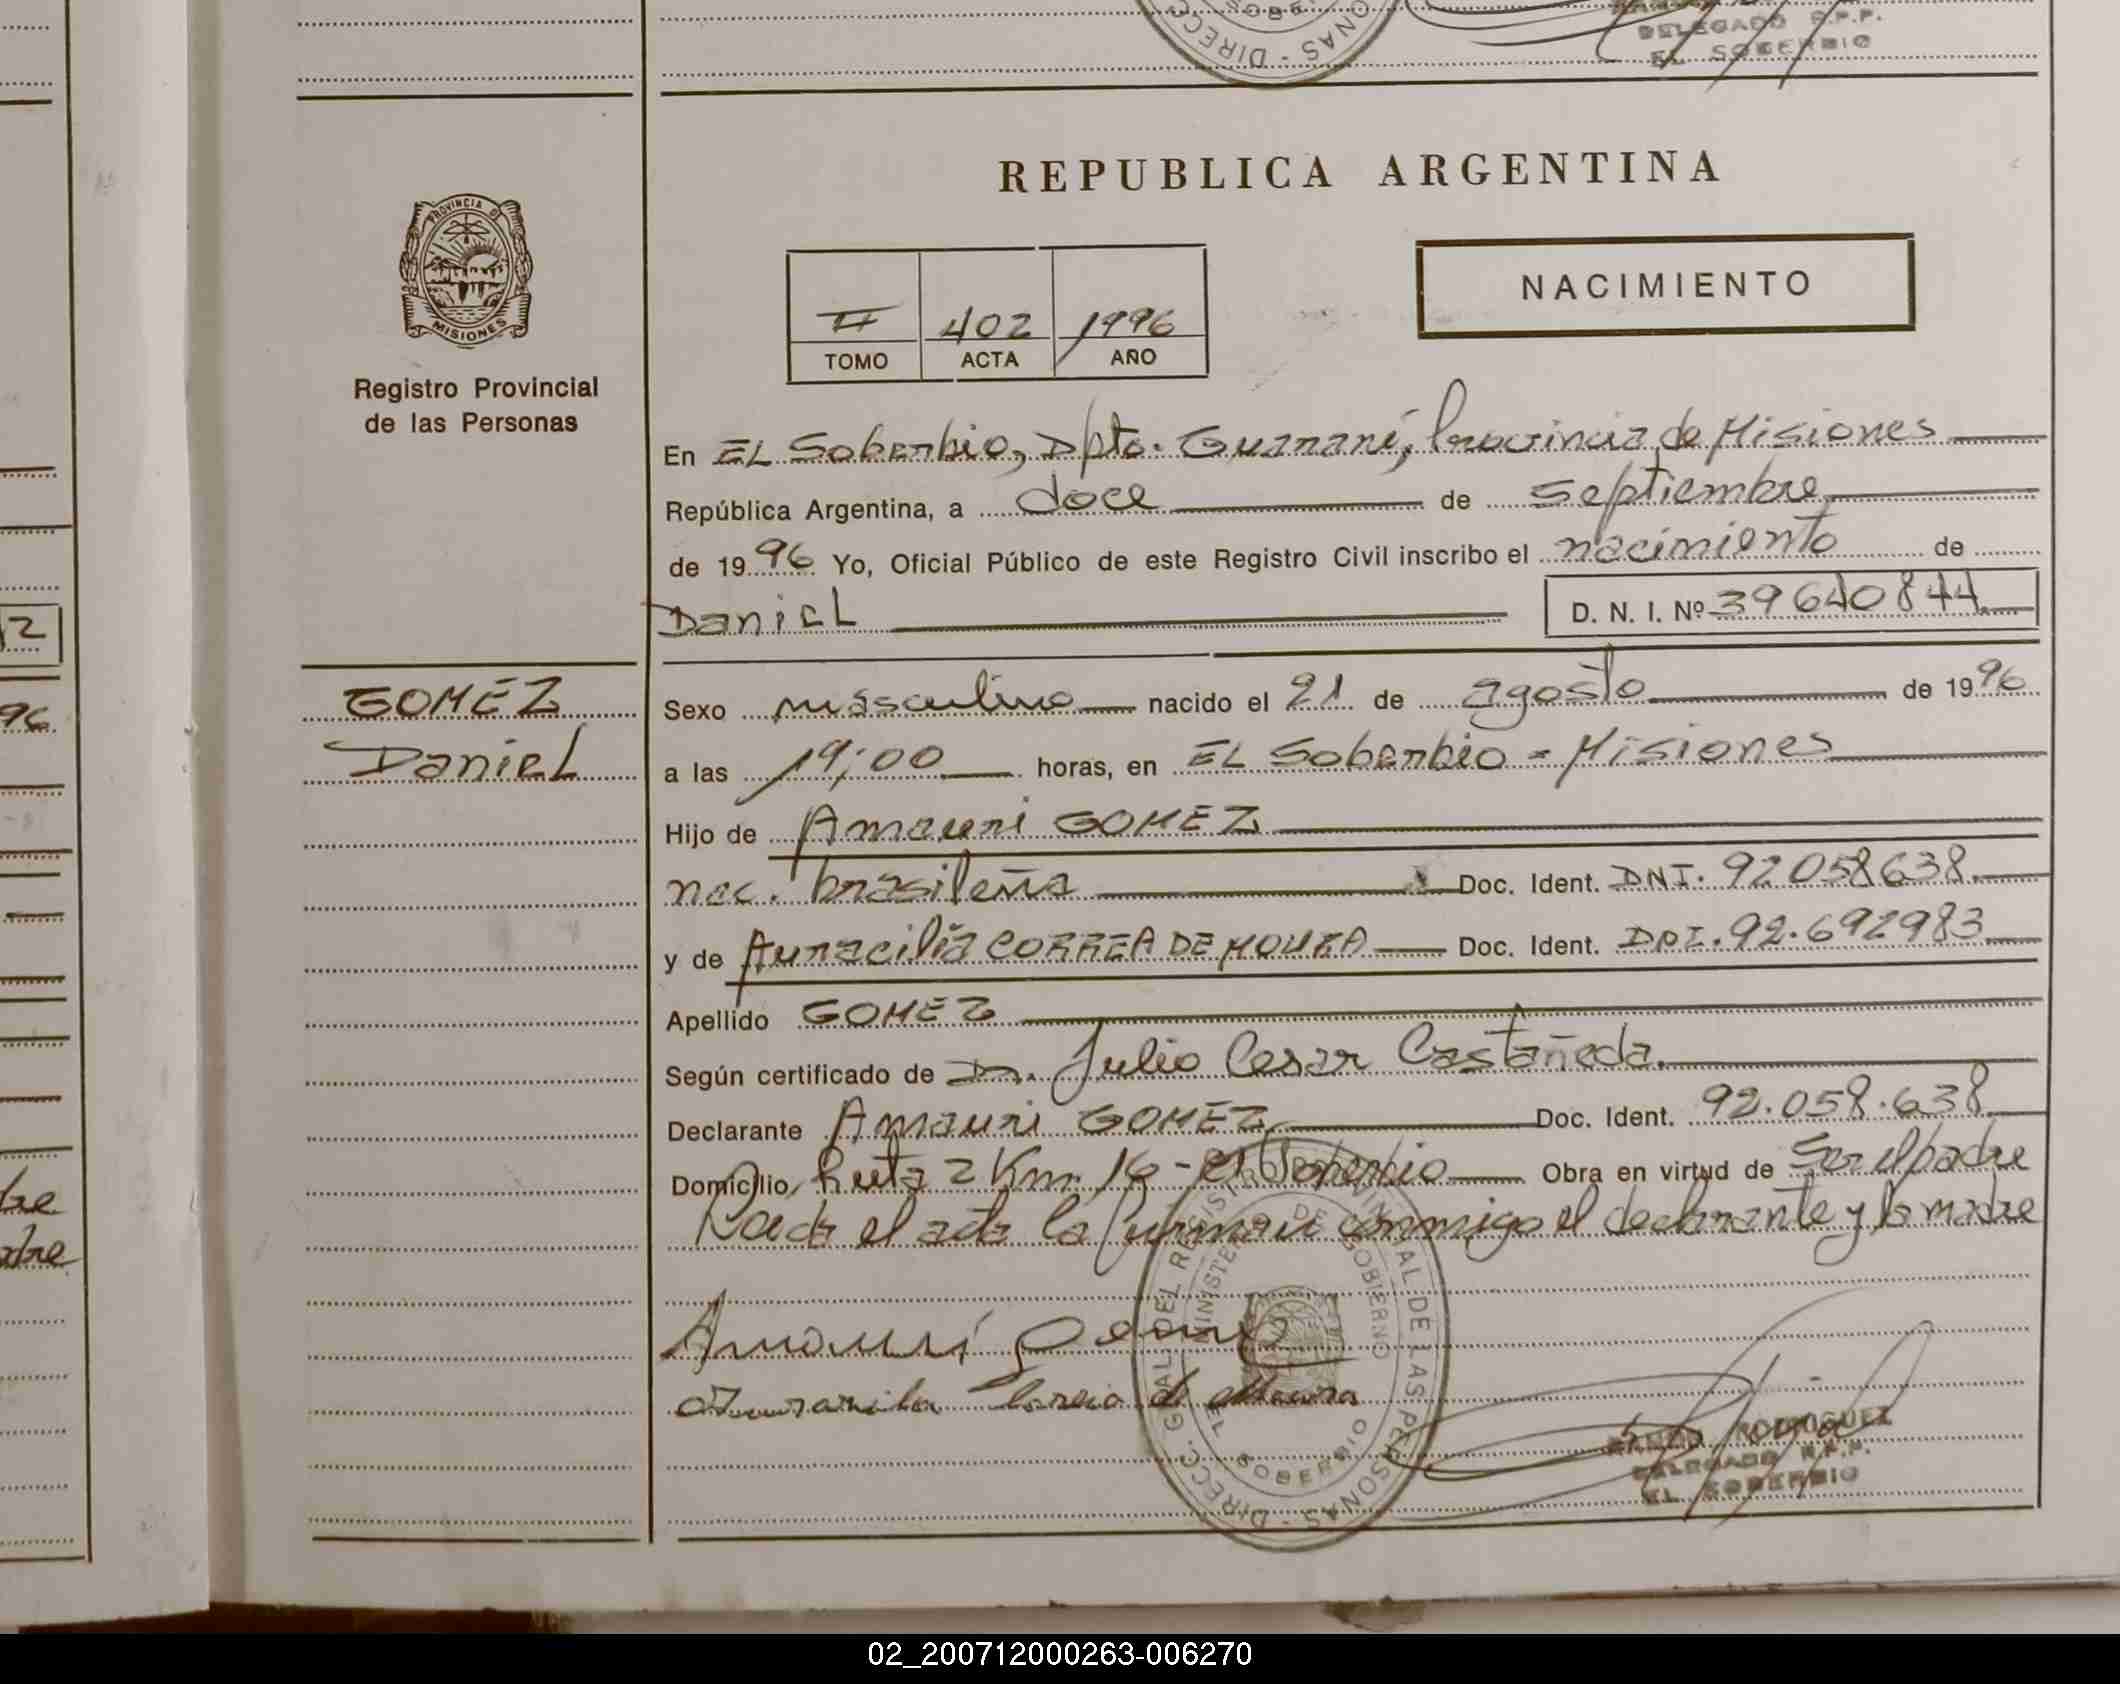 DELEGADO R.P.P.
EL SOBERBIO
REPUBLICA ARGENTINA
PROVINCIA DE
MISIONES
Registro Provincial
de las Personas
NACIMIENTO
II 402 1996
TOMO ACTA AÑO
En EL Soberbio, Dpto. Guaraní, Provincia de Misiones
República Argentina, a doce de septiembre
de 1996 Yo, Oficial Público de este Registro Civil inscribo el nacimiento de
Daniel D. N. I. Nº 39640844
GOMEZ
Daniel
Sexo masculino nacido el 21 de agosto de 1996
a las 19,00 horas, en EL Soberbio = Misiones
Hijo de Amauri GOMEZ
nac. brasileña Doc. Ident. DNI. 92058638.
y de Auracilia CORREA DE MOURA Doc. Ident. DNI. 92.692983
Apellido GOMEZ
Según certificado de Dr. Julio Cesar Castañeda.
Declarante Amauri GOMEZ Doc. Ident. 92.058.638
Domicilio Ruta 2 Km. 16 - El Soberbio Obra en virtud de Ser el padre
el acta la firman conmigo el declarante y la madre
Amauri Gomez
Correia de Moura
DIRECC. GRAL. DEL REGISTRO PROVINCIAL DE LAS PERSONAS
MINISTERIO DE GOBIERNO
EL SOBERBIO
RODRIGUEZ
DELEGADO R.P.P.
EL SOBERBIO
02_200712000263-006270